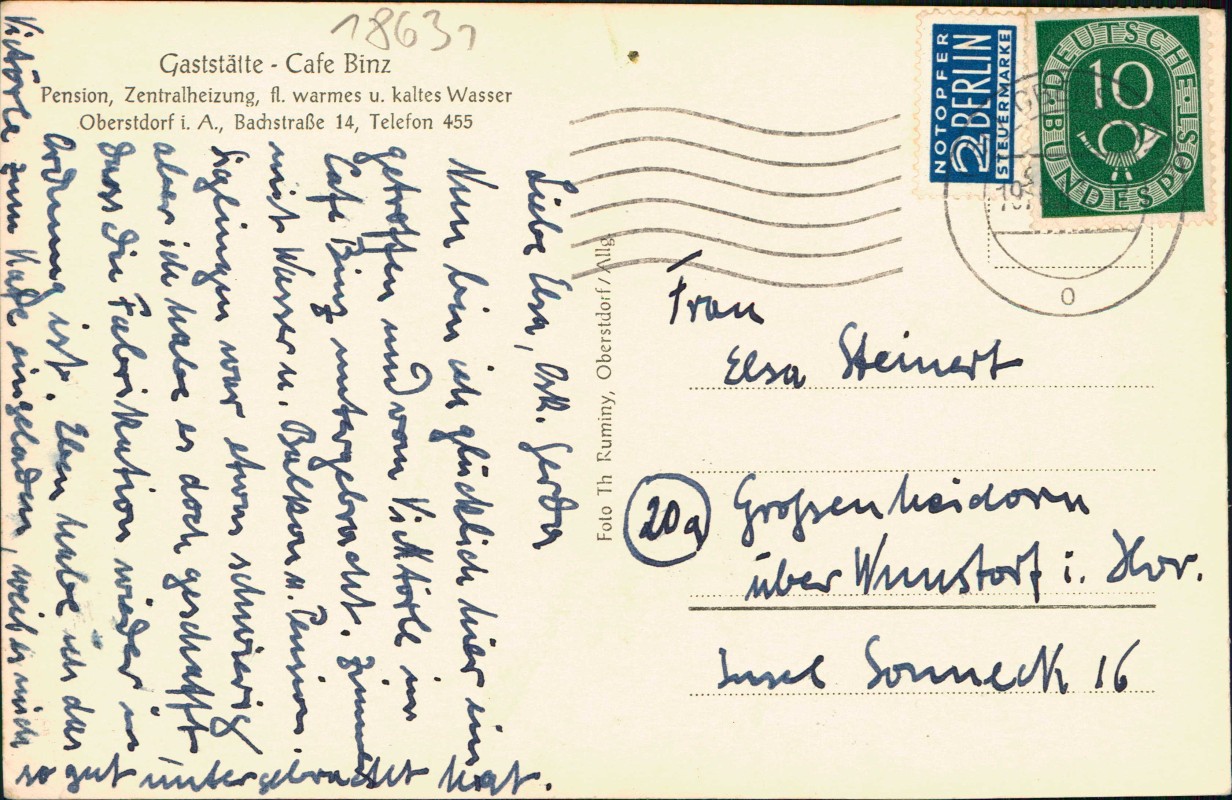 18631
Gaststätte - Cafe Binz
Pension, Zentralheizung, fl. warmes u. kaltes Wasser
Oberstdorf i. A., Bachstraße 14, Telefon 455
Liebe Elsa, Gerda
Nun bin ich glücklich hier ein
getroffen und vom Viktörle im
Cafe Binz untergebracht. Zimmer
mit Wasser u. Balkon u. Pension.
Siglingen war etwas schwierig
aber ich habe es doch geschafft
dass die Fabrikation wieder in
Ordnung ist. Eben habe ich das
Viktörle zum Kaffe eingeladen, weil es mich
so gut untergebracht hat.
Foto Th Ruminy, Oberstdorf/Allg.
NOTOPFER
2 BERLIN
STEUERMARKE
DEUTSCHE
10
BUNDESPOST
Frau
Elsa Steinert
20a Grossenheidorn
über Wunstorf i. Hor.
Insel Sonneck 16